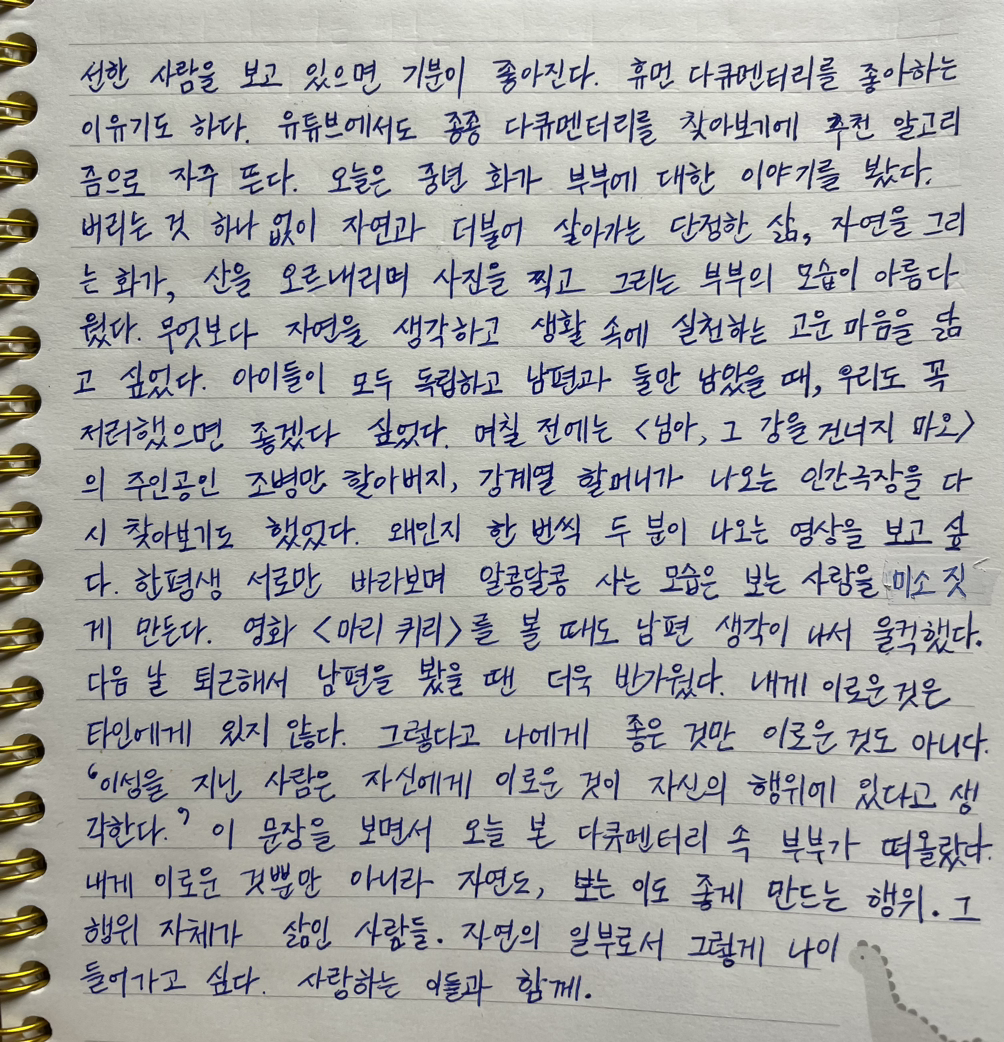 선한 사람을 보고 있으면 기분이 좋아진다. 휴먼 다큐멘터리를 좋아하는
이유기도 하다. 유튜브에서도 종종 다큐멘터리를 찾아보기에 추천 알고리
즘으로 자주 뜬다. 오늘은 중년 화가 부부에 대한 이야기를 봤다.
버리는 것 하나 없이 자연과 더불어 살아가는 단정한 삶, 자연을 그리
는 화가, 산을 오르내리며 사진을 찍고 그리는 부부의 모습이 아름다
웠다. 무엇보다 자연을 생각하고 생활 속에 실천하는 고운 마음을 닮
고 싶었다. 아이들이 모두 독립하고 남편과 둘만 남았을 때, 우리도 꼭
저러했으면 좋겠다 싶었다. 며칠 전에는 <님아, 그 강을 건너지 마오>
의 주인공인 조병만 할아버지, 강계열 할머니가 나오는 인간극장을 다
시 찾아보기도 했었다. 왜인지 한 번씩 두 분이 나오는 영상을 보고 싶
다. 한평생 서로만 바라보며 알콩달콩 사는 모습은 보는 사람을 미소 짓
게 만든다. 영화 <마리 퀴리>를 볼 때도 남편 생각이 나서 울컥했다.
다음 날 퇴근해서 남편을 봤을 땐 더욱 반가웠다. 내게 이로운 것은
타인에게 있지 않다. 그렇다고 나에게 좋은 것만 이로운 것도 아니다.
'이성을 지닌 사람은 자신에게 이로운 것이 자신의 행위에 있다고 생
각한다.' 이 문장을 보면서 오늘 본 다큐멘터리 속 부부가 떠올랐다.
내게 이로운 것뿐만 아니라 자연도, 보는 이도 좋게 만드는 행위. 그
행위 자체가 삶인 사람들. 자연의 일부로서 그렇게 나이
들어가고 싶다. 사랑하는 이들과 함께.